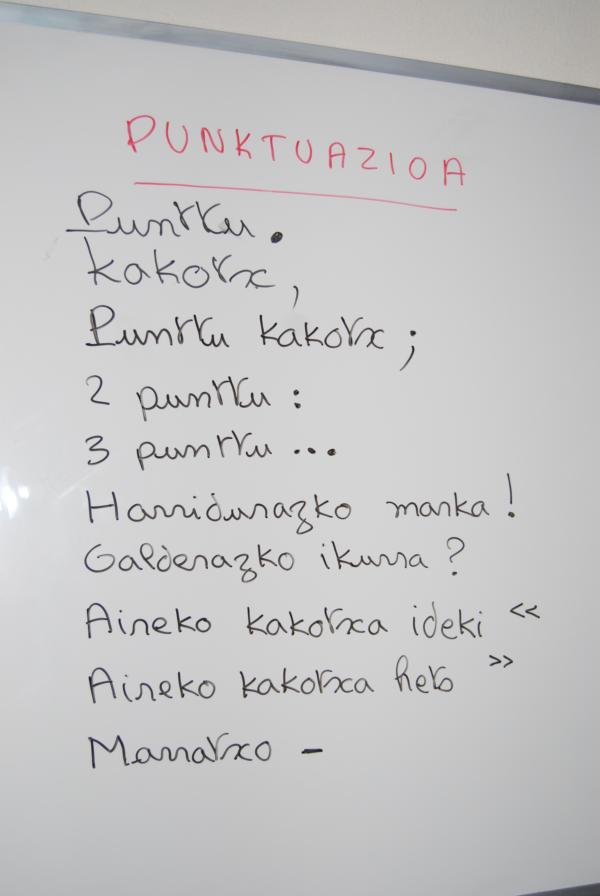 PUNKTUAZIOA
Punttu .
kakotx ,
Punttu kakotx ;
2 punttu :
3 punttu ...
Harridurazko marka !
Galderazko ikurra ?
Aireko kakotxa ideki <<
Aireko kakotxa hets >>
Marratxo -